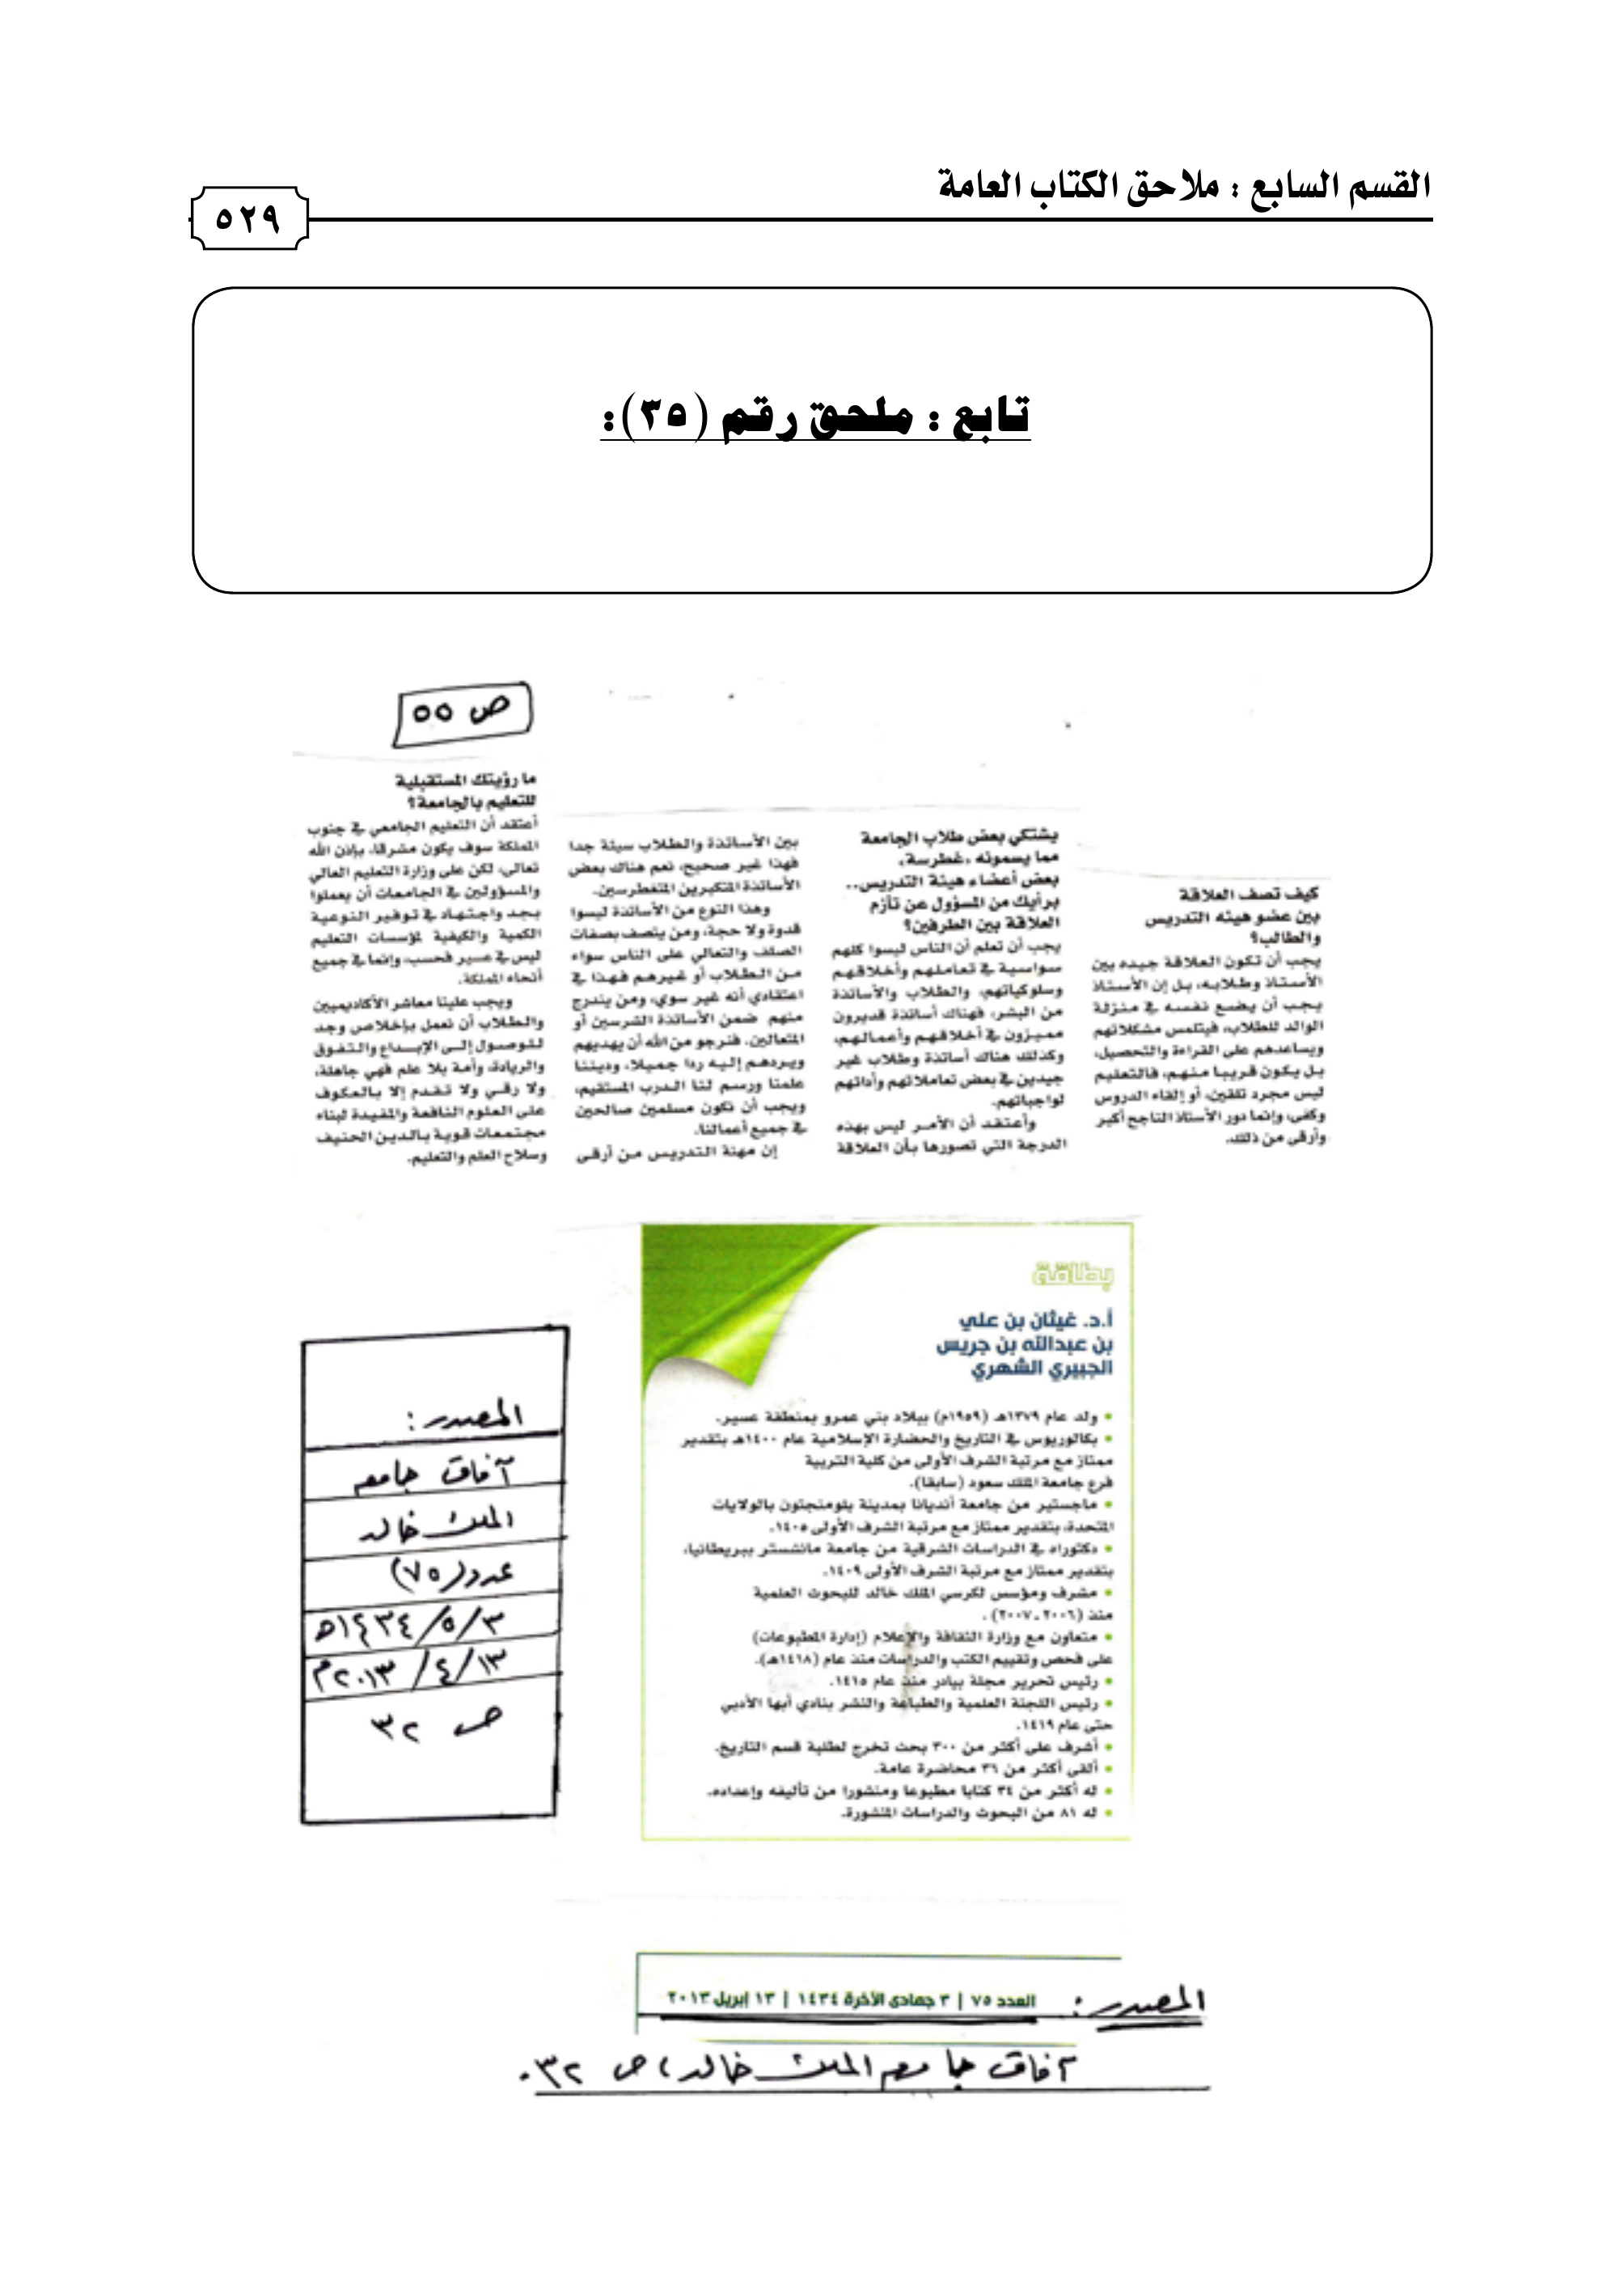 القسم السابع : ملاحق الكتاب العامة
٥٢٩
تابع : ملحق رقم (٣٥):
ص ٥٥
كيف تصف العلاقة
بين عضو هيئه التدريس
والطالب؟
يجب أن تكون العلاقة جيده بين
الأستاذ وطلابه، بل إن الأستاذ
يجب أن يضع نفسه في منزلة
الوالد للطلاب، فيتلمس مشكلاتهم
ويساعدهم على القراءة والتحصيل،
بل يكون قريبا منهم، فالتعليم
ليس مجرد تلقين، أو إلقاء الدروس
وكفى، وإنما دور الأستاذ الناجح أكبر
وأرقى من ذلك.
يشتكي بعض طلاب الجامعة
مما يسمونه «غطرسة»
بعض أعضاء هيئة التدريس..
برأيك من المسؤول عن تأزم
العلاقة بين الطرفين؟
يجب أن تعلم أن الناس ليسوا كلهم
سواسية في تعاملهم وأخلاقهم
وسلوكياتهم، والطلاب والأساتذة
من البشر، فهناك أساتذة قديرون
مميزون في أخلاقهم وأعمالهم،
وكذلك هناك أساتذة وطلاب غير
جيدين في بعض تعاملاتهم وأدائهم
لواجباتهم.
وأعتقد أن الأمر ليس بهذه
الدرجة التي تصورها بأن العلاقة
بين الأساتذة والطلاب سيئة جدا
فهذا غير صحيح، نعم هناك بعض
الأساتذة المتكبرين المتغطرسين.
وهذا النوع من الأساتذة ليسوا
قدوة ولا حجة، ومن يتصف بصفات
الصلف والتعالي على الناس سواء
من الطلاب أو غيرهم فهذا في
اعتقادي أنه غير سوي، ومن يندرج
منهم ضمن الأساتذة الشرسين أو
المتعالين، فنرجو من الله أن يهديهم
ويردهم إليه ردا جميلا، وديننا
علمنا ورسم لنا الدرب المستقيم،
ويجب أن نكون مسلمين صالحين
في جميع أعمالنا.
إن مهنة التدريس من أرقى
ما رؤيتك المستقبلية
للتعليم بالجامعة؟
أعتقد أن التعليم الجامعي في جنوب
المملكة سوف يكون مشرقا، بإذن الله
تعالى، لكن على وزارة التعليم العالي
والمسؤولين في الجامعات أن يعملوا
بجد واجتهاد في توفير النوعية
الكمية والكيفية لمؤسسات التعليم
ليس في عسير فحسب، وإنما في جميع
أنحاء المملكة.
ويجب علينا معاشر الأكاديميين
والطلاب أن نعمل بإخلاص وجد
للوصول إلى الإبداع والتفوق
والريادة، وأمة بلا علم فهي جاهلة،
ولا رقي ولا تقدم إلا بالعكوف
على العلوم النافعة والمفيدة لبناء
مجتمعات قوية بالدين الحنيف
وسلاح العلم والتعليم.
بطاقة
أ.د. غيثان بن علي
بن عبدالله بن جريس
الجبيري الشهري
• ولد عام ١٣٧٩هـ (١٩٥٩م) ببلاد بني عمرو بمنطقة عسير.
• بكالوريوس في التاريخ والحضارة الإسلامية عام ١٤٠٠هـ بتقدير
ممتاز مع مرتبة الشرف الأولى من كلية التربية
فرع جامعة الملك سعود (سابقا).
• ماجستير من جامعة أنديانا بمدينة بلومنجتون بالولايات
المتحدة، بتقدير ممتاز مع مرتبة الشرف الأولى ١٤٠٥.
• دكتوراه في الدراسات الشرقية من جامعة مانشستر ببريطانيا،
بتقدير ممتاز مع مرتبة الشرف الأولى ١٤٠٩.
• مشرف ومؤسس لكرسي الملك خالد للبحوث العلمية
منذ (٢٠٠٦ـ٢٠٠٧) .
• متعاون مع وزارة الثقافة والإعلام (إدارة المطبوعات)
على فحص وتقييم الكتب والدراسات منذ عام (١٤١٨هـ).
• رئيس تحرير مجلة بيادر منذ عام ١٤١٥.
• رئيس اللجنة العلمية والطباعة والنشر بنادي أبها الأدبي
حتى عام ١٤١٩.
• أشرف على أكثر من ٣٠٠ بحث تخرج لطلبة قسم التاريخ.
• ألقى أكثر من ٣٦ محاضرة عامة.
• له أكثر من ٣٤ كتابا مطبوعا ومنشورا من تأليفه وإعداده.
• له ٨١ من البحوث والدراسات المنشورة.
المصدر :
آفاق جامعة
الملك خالد
عدد (٧٥)
٣/٥/١٤٣٤هـ
١٣/٤/٢٠١٣م
ص ٣٢
المصدر : العدد ٧٥ | ٣ جمادى الآخرة ١٤٣٤ | ١٣ إبريل ٢٠١٣
آفاق جامعة الملك خالد، ص ٣٢.